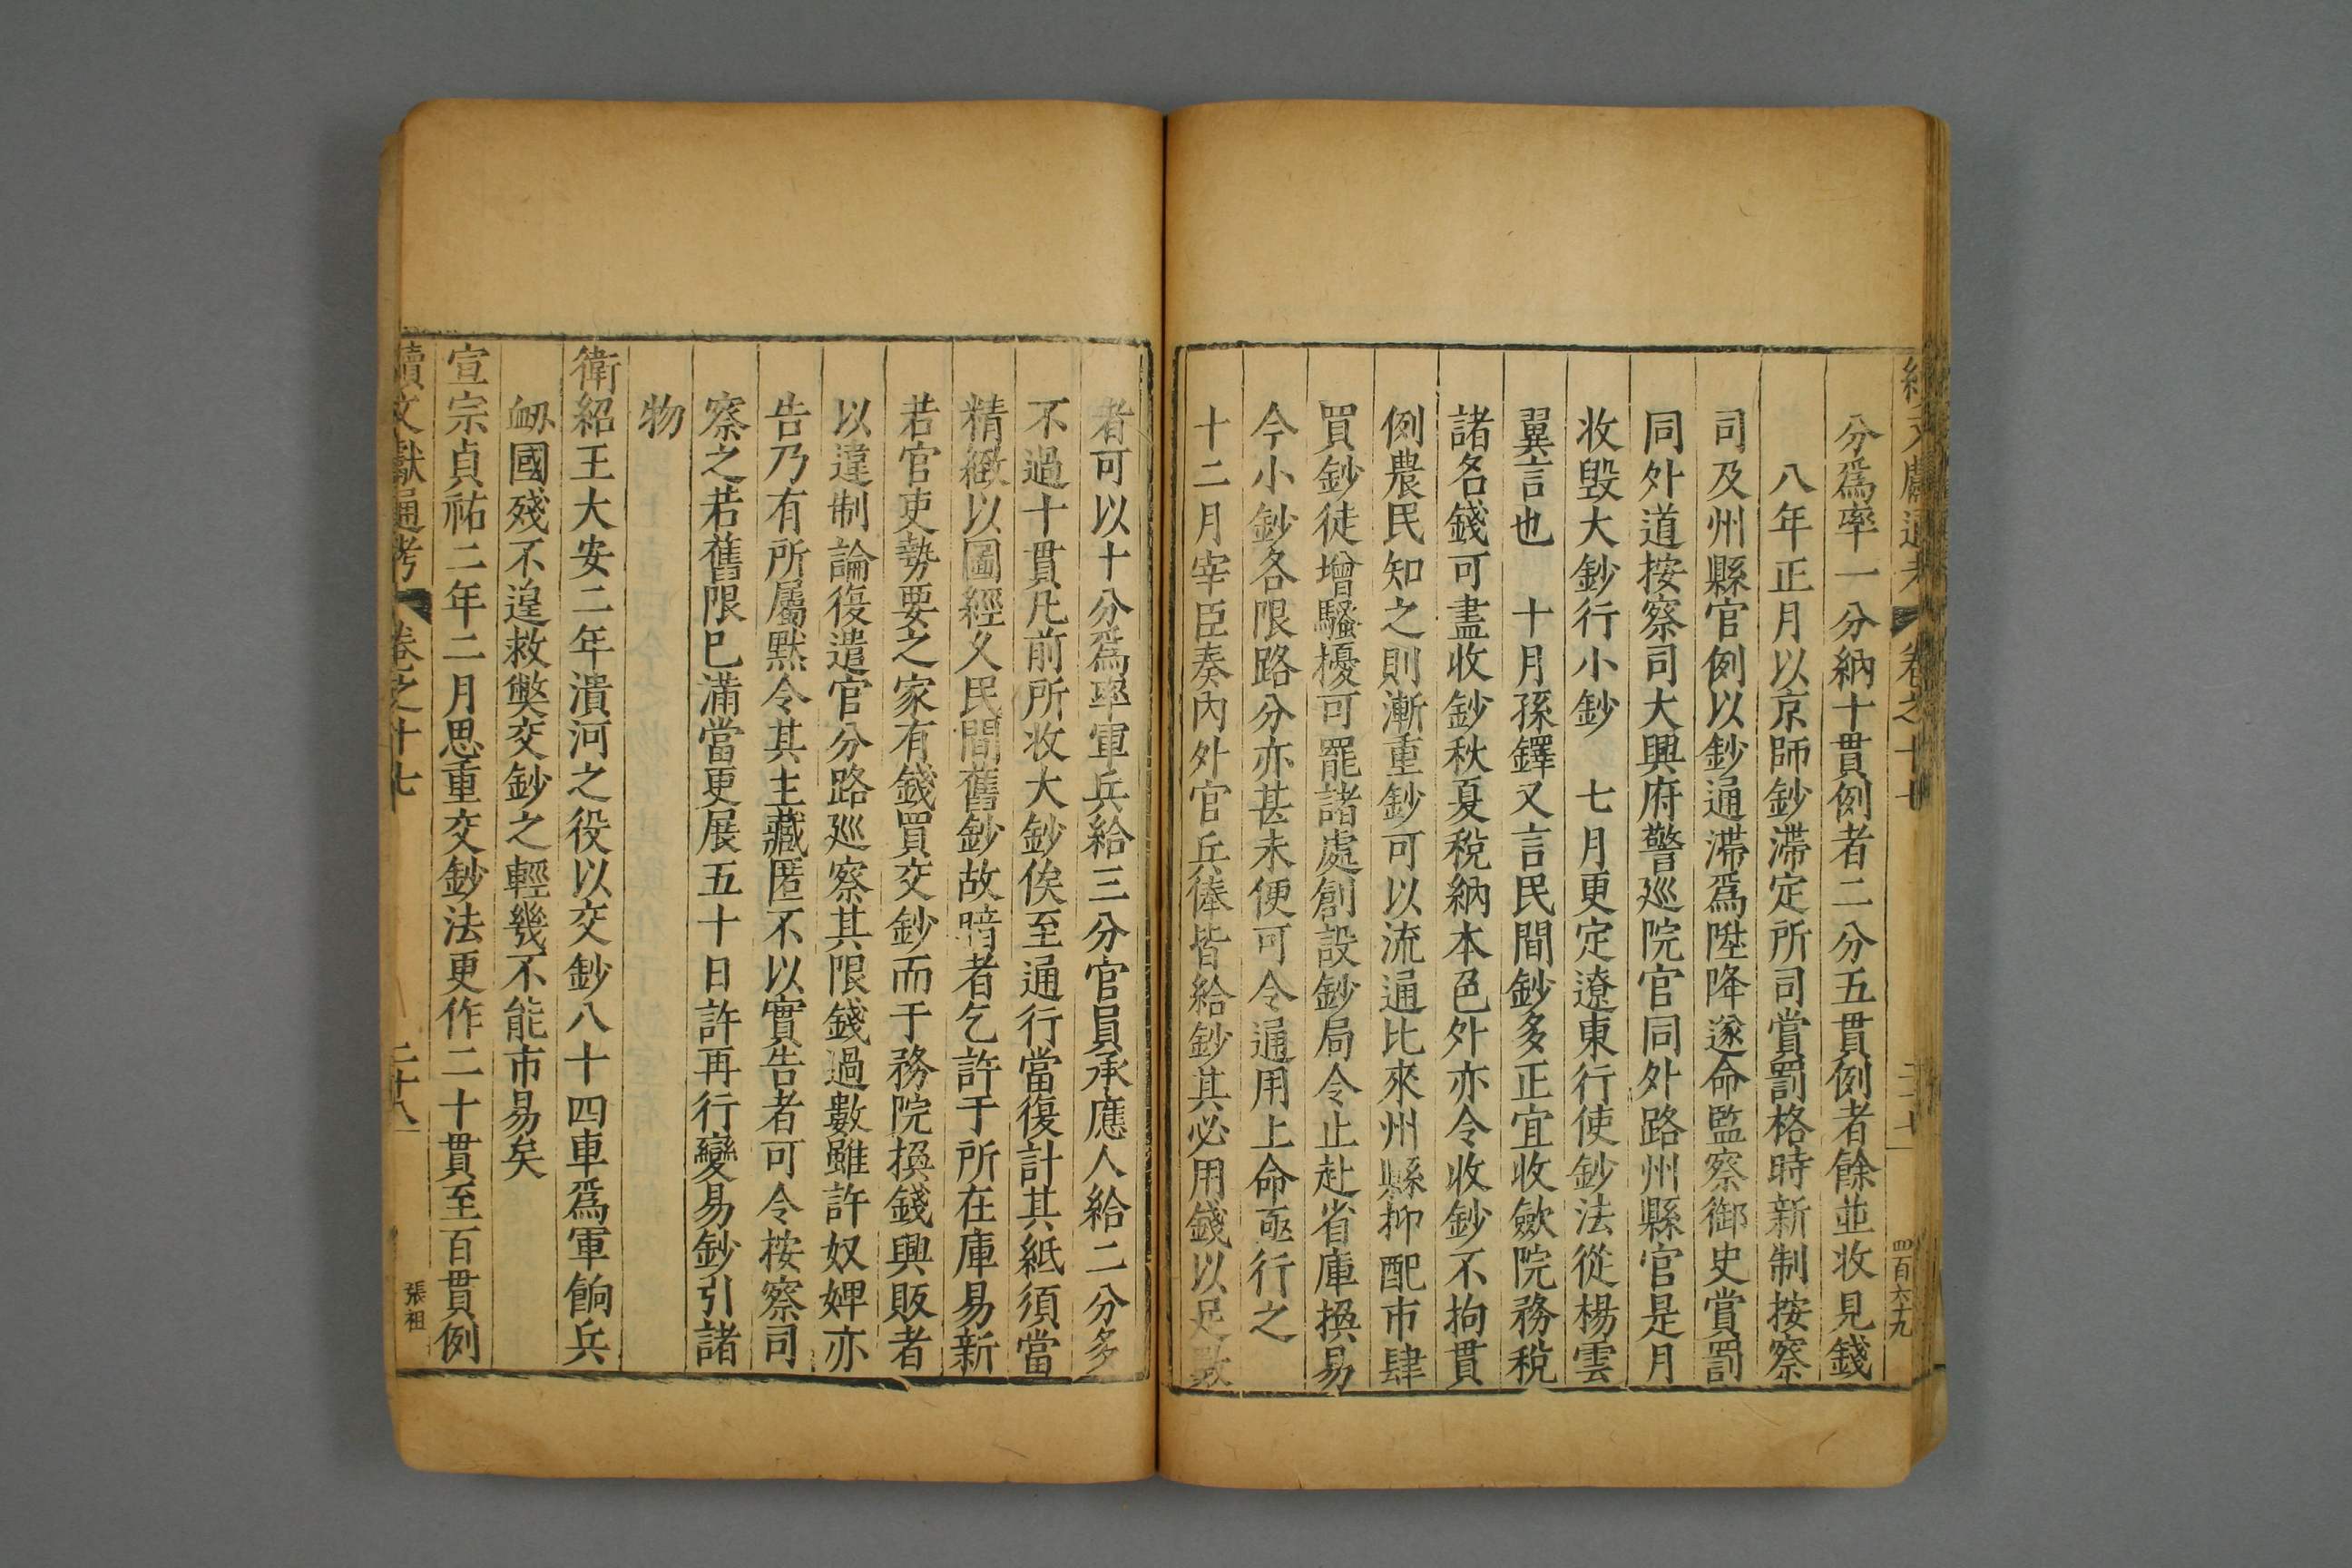 續文獻通考 卷之十七 二十七 四百六九
分爲率一分納十貫例者二分五貫例者餘並收見錢
八年正月以京師鈔滯定所司賞罰格時新制按察
司及州縣官例以鈔通滯爲陞降遂命監察御史賞罰
同外道按察司大興府警廵院官同外路州縣官是月
收毀大鈔行小鈔 七月更定遼東行使鈔法從楊雲
翼言也 十月孫鐸又言民間鈔多正宜收斂院務稅
諸名錢可盡收鈔秋夏稅納本色外亦令收鈔不拘貫
例農民知之則漸重鈔可以流通比來州縣抑配市肆
買鈔徒增騷擾可罷諸處創設鈔局令止赴省庫換易
今小鈔各限路分亦甚未便可令通用上命亟行之
十二月宰臣奏內外官兵俸皆給鈔其必用錢以足數
者可以十分爲率軍兵給三分官員承應人給二分多
不過十貫凡前所收大鈔俟至通行當復計其紙須當
精緻以圖經久民間舊鈔故暗者乞許于所在庫易新
若官吏勢要之家有錢買交鈔而于務院換錢興販者
以違制論復遣官分路廵察其限錢過數雖許奴婢亦
告乃有所屬黙令其主藏匿不以實告者可令按察司
察之若舊限巳滿當更展五十日許再行變易鈔引諸
物
衛紹王大安二年潰河之役以交鈔八十四車爲軍餉兵
衂國殘不遑救獘交鈔之輕幾不能市易矣
宣宗貞祐二年二月思重交鈔法更作二十貫至百貫例
續文獻通考 卷之十七 二十八 張祖